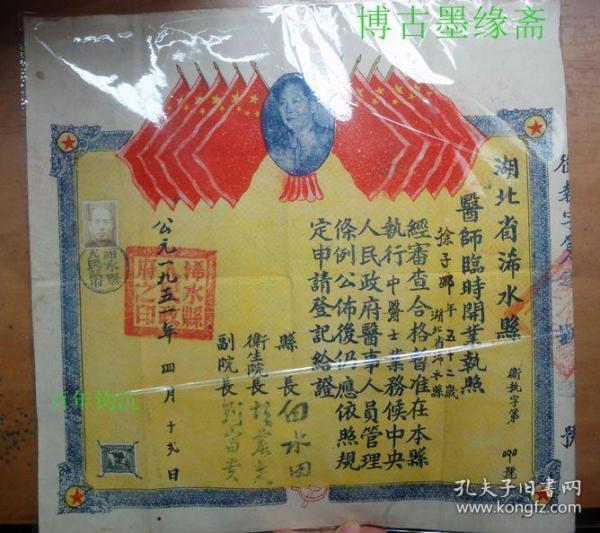 博古墨缘斋
湖北省浠水縣
醫師臨時開業執照
衛執字第
號
徐子 年五十二歲
湖北省浠水縣
經審查合格暫准在本縣
執行中醫士業務候中央
人民政府醫事人員管理
條例公佈後仍應依照規
定申請登記給證
縣長田水田
衛生院長
副院長
公元一九五一年四月十弍日
浠水縣
人民政
府之印
浠水縣
人民政府
號
百年钩沉
孔夫子旧书网
www.kongfz.com